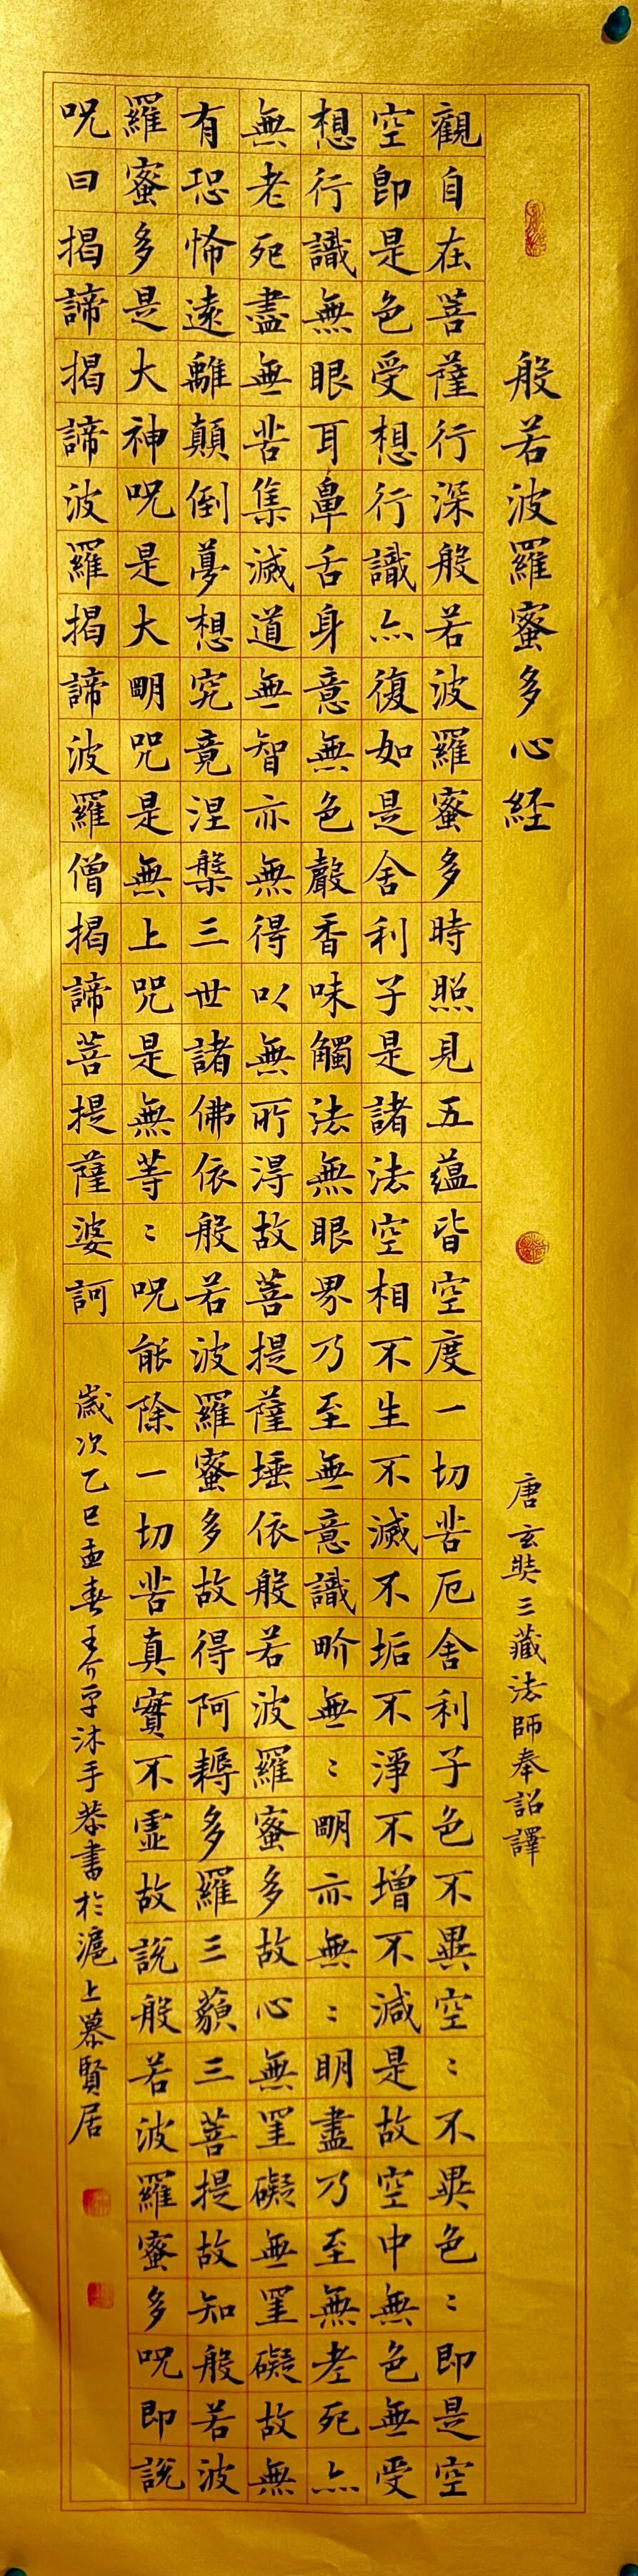 般若波羅蜜多心経
唐玄奘三藏法師奉詔譯
觀自在菩薩行深般若波羅蜜多時照見五蘊皆空度一切苦厄舍利子色不異空〻不異色〻即是空
空即是色受想行識亦復如是舍利子是諸法空相不生不滅不垢不淨不增不減是故空中無色無受
想行識無眼耳鼻舌身意無色聲香味觸法無眼界乃至無意識畍無〻明亦無〻明盡乃至無老死亦
無老死盡無苦集滅道無智亦無得以無所得故菩提薩埵依般若波羅蜜多故心無罣礙無罣礙故無
有恐怖遠離顛倒夢想究竟涅槃三世諸佛依般若波羅蜜多故得阿耨多羅三藐三菩提故知般若波
羅蜜多是大神呪是大明呪是無上呪是無等〻呪能除一切苦真實不虛故說般若波羅蜜多呪即說
呪曰揭諦揭諦波羅揭諦波羅僧揭諦菩提薩婆訶
歲次乙巳孟春王介沐手恭書於滬上慕賢居